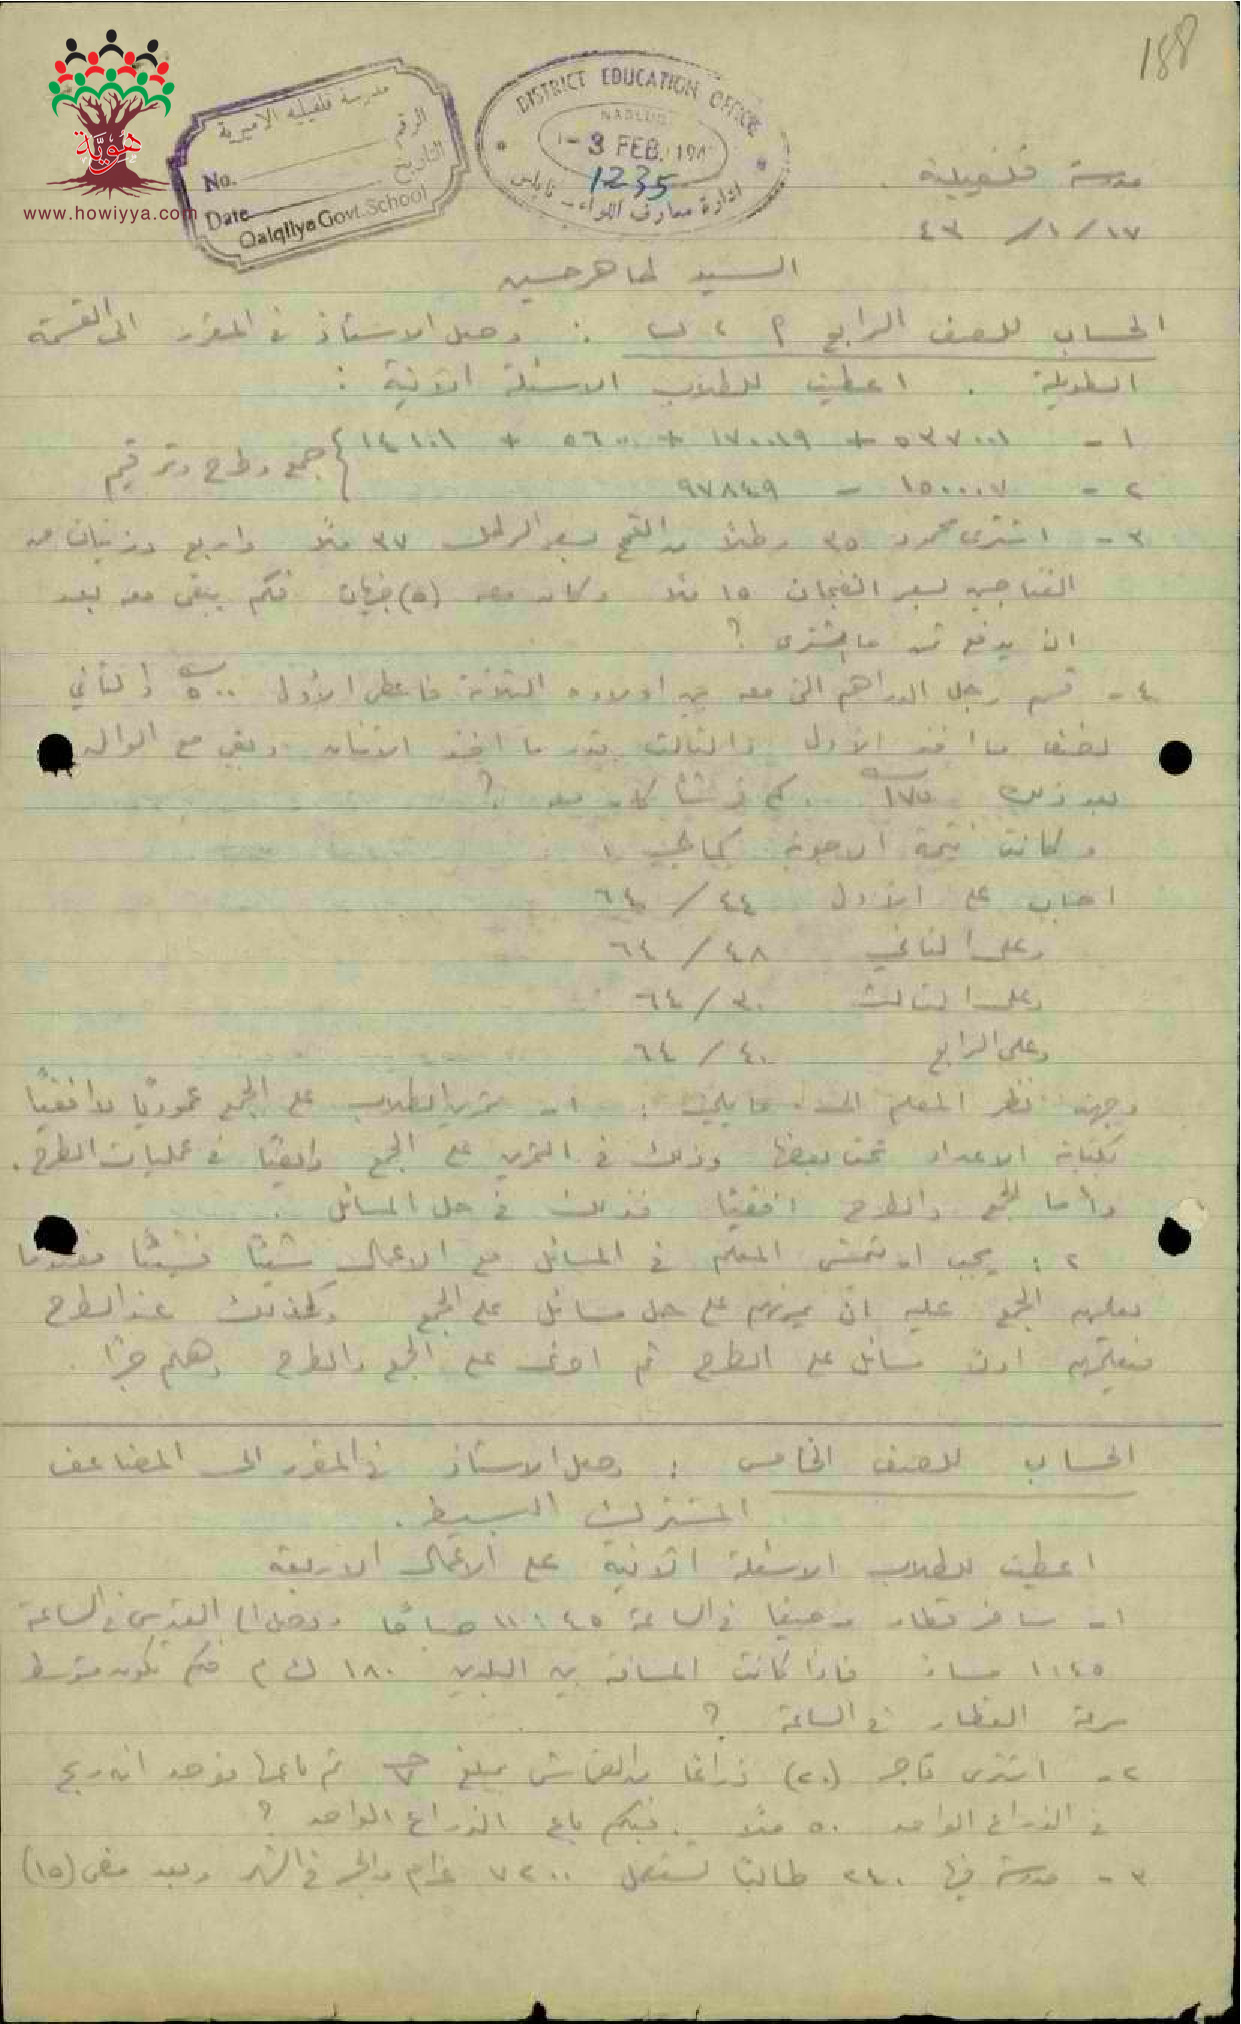 188
هوية
www.howiyya.com
مدرسة قلقيلية الاميرية
الرقم
No.
التاريخ
Date
Qalqilya Govt. School
DISTRICT EDUCATION OFFICE
NABLUS
- 3 FEB. 194
1235
ادارة معارف اللواء - نابلس
مدرسة قلقيلية
١٧ / ١ / ٤٣
السيد طاهر حسين
الحساب للصف الرابع ٢ ، ب : وصل الاستاذ في المقرر الى القسمة
الطويلة . اعطيت للطلاب الاسئلة الآتية :
١ - ٥٣٧٠٠١ + ١٧٠٠١٩ + ٥٦٠٠ + ١٤١٠١ } جمع وطرح وترقيم
٢ - ١٥٠٠٠٧ - ٩٧٨٤٩
٣ - اشترى محمود ٣٥ رطلاً من القمح بسعر الرطل ٣٧ ملاً واربع من
الفناجين بسعر الفنجان ١٥ ملاً وكان معه (٥) جنيهات فكم يبقى معه بعد
ان يدفع ثمن ما اشترى ؟
٤ - قسم رجل الدراهم التي معه بين اولاده الثلاثة فاعطى الأول ٥٠٠ والثاني
نصف ما اخذ الأول والثالث بقدر ما اخذ الاثنان وبقي مع الوالد
بعد ذلك ١٧٥ . كم قرشاً كان معه ؟
وكانت نتيجة الاجوبة كما يلي :
اجاب على الأول ٤٤ / ٦٤
وعلى الثاني ٤٨ / ٦٤
وعلى الثالث ٣٠ / ٦٤
وعلى الرابع ٤٠ / ٦٤
وجهت نظر المعلم الى ما يلي : ١ - تمرين الطلاب على الجمع عمودياً وافقياً
بكتابة الاعداد تحت بعضها وذلك في التمرين على الجمع وايضاً في عمليات الطرح .
وأما الجمع والطرح افقياً فذلك في حل المسائل .
٢ : يجب ان يتمشى المعلم في المسائل مع الاعمال شيئاً فشيئاً فعندما
يعلمهم الجمع عليه ان يمرنهم على حل مسائل على الجمع وكذلك عند الطرح
فيعطيهم اولا مسائل على الطرح ثم اخرى على الجمع والطرح وهلم جراً .
الحساب للصف الخامس : وصل الاستاذ في المقرر الى المضاعف
المشترك البسيط .
اعطيت للطلاب الاسئلة الآتية على الاعمال الاربعة
١ - سافر قطار من حيفا في الساعة ١١:٤٥ صباحاً ووصل الى القدس في الساعة
١:٤٥ مساء فاذا كانت المسافة بين البلدين ١٨٠ ك م فكم تكون متوسط
سرعة القطار في الساعة ؟
٢ - اشترى تاجر (٢٠) ذراعاً من القماش بمبلغ ثم باعها فوجد انه ربح
في الذراع الواحد ٥٠ ملاً . فبكم باع الذراع الواحد ؟
٣ - مدرسة فيها ٢٤٠ طالباً تستعمل ٧٢٠٠ غرام من الحبر في الشهر وبعد مضى (١٥)